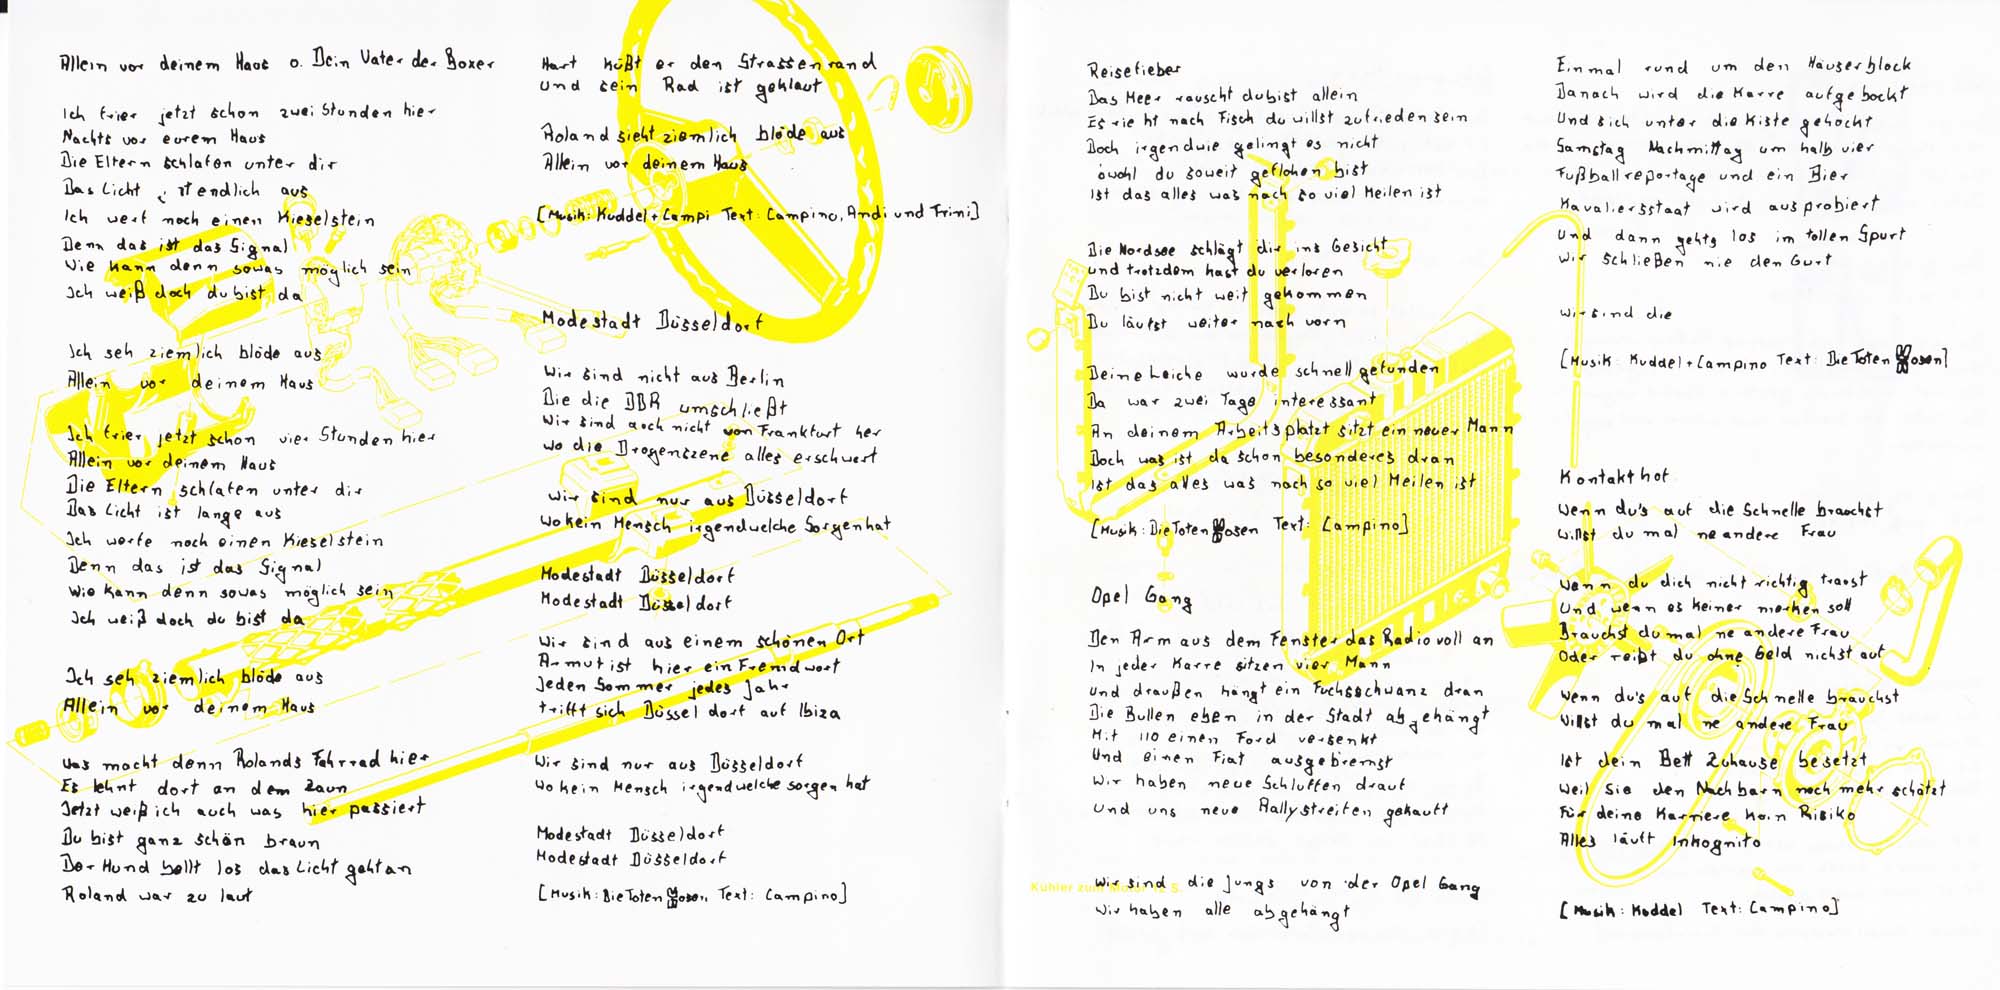 Allein vor deinem Haus o. Dein Vater der Boxer
Ich frier jetzt schon zwei Stunden hier
Nachts vor eurem Haus
Die Eltern schlafen unter dir
Das Licht ist endlich aus
Ich werf noch einen Kieselstein
Denn das ist das Signal
Wie kann denn sowas möglich sein
Ich weiß doch du bist da
Ich seh ziemlich blöde aus
Allein vor deinem Haus
Ich frier jetzt schon vier Stunden hier
Allein vor deinem Haus
Die Eltern schlafen unter dir
Das Licht ist lange aus
Ich werfe noch einen Kieselstein
Denn das ist das Signal
Wie kann denn sowas möglich sein
Ich weiß doch du bist da
Ich seh ziemlich blöde aus
Allein vor deinem Haus
Was macht denn Rolands Fahrrad hier
Es lehnt dort an dem Zaun
Jetzt weiß ich auch was hier passiert
Du bist ganz schön braun
Der Hund bellt los das Licht geht an
Roland war zu laut
Hart küßt er den Strassenrand
Und sein Rad ist geklaut
Roland sieht ziemlich blöde aus
Allein vor deinem Haus
[Musik: Kuddel + Campi Text: Campino, Andi und Trini]
Modestadt Düsseldorf
Wir sind nicht aus Berlin
Die die DDR umschließt
Wir sind auch nicht von Frankfurt her
wo die Drogenszene alles erschwert
Wir sind nur aus Düsseldorf
Wo kein Mensch irgendwelche Sorgen hat
Modestadt Düsseldorf
Modestadt Düsseldorf
Wir sind aus einem schönen Ort
Armut ist hier ein Fremdwort
Jeden Sommer jedes Jahr
trifft sich Düsseldorf auf Ibiza
Wir sind nur aus Düsseldorf
Wo kein Mensch irgendwelche sorgen hat
Modestadt Düsseldorf
Modestadt Düsseldorf
[Musik: Die Toten Hosen, Text: Campino]
Reisefieber
Das Meer rauscht du bist allein
Es riecht nach Fisch du willst zufrieden sein
Doch irgendwie gelingt es nicht
obwohl du soweit geflohen bist
Ist das alles was nach so viel Meilen ist
Die Nordsee schlägt dir ins Gesicht
und trotzdem hast du verloren
Du bist nicht weit gekommen
Du läufst weiter nach vorn
Deine Leiche wurde schnell gefunden
Da war zwei Tage interessant
An deinem Arbeitsplatzt sitzt ein neuer Mann
Doch was ist da schon besonderes dran
Ist das alles was nach so viel Meilen ist
[Musik: Die Toten Hosen Text: Campino]
Opel Gang
Den Arm aus dem Fenster das Radio voll an
In jeder Karre sitzen vier Mann
Und draußen hängt ein Fuchsschwanz dran
Die Bullen eben in der Stadt abgehängt
Mit 110 einen Ford versenkt
Und einen Fiat ausgebremst
Wir haben neue Schluffen drauf
Und uns neue Rallystreifen gekauft
Kühler zum Motor 12 S.
Wir sind die Jungs von der Opel Gang
Wir haben alle abgehängt
Einmal rund um den Häuserblock
Danach wird die Karre aufgebockt
Und sich unter die Kiste gehockt
Samstag Nachmittag um halb vier
Fußballreportage und ein Bier
Kavaliersstaat wird ausprobiert
Und dann gehts los im tollen Spurt
Wir schließen nie den Gurt
Wir sind die
[Musik: Kuddel + Campino Text: Die Toten Hosen]
Kontakthof
Wenn du's auf die Schnelle brauchst
Willst du mal ne andere Frau
Wenn du dich nicht richtig traust
Und wenn es keiner merken soll
Brauchst du mal ne andere Frau
Oder reißt du ohne Geld nichst auf
Wenn du's auf die Schnelle brauchst
Willst du mal ne andere Frau
Ist dein Bett Zuhause besetzt
Weil sie den Nachbarn noch mehr schätzt
Für deine Karriere kein Risiko
Alles läuft Inkognito
[Musik: Kuddel Text: Campino]